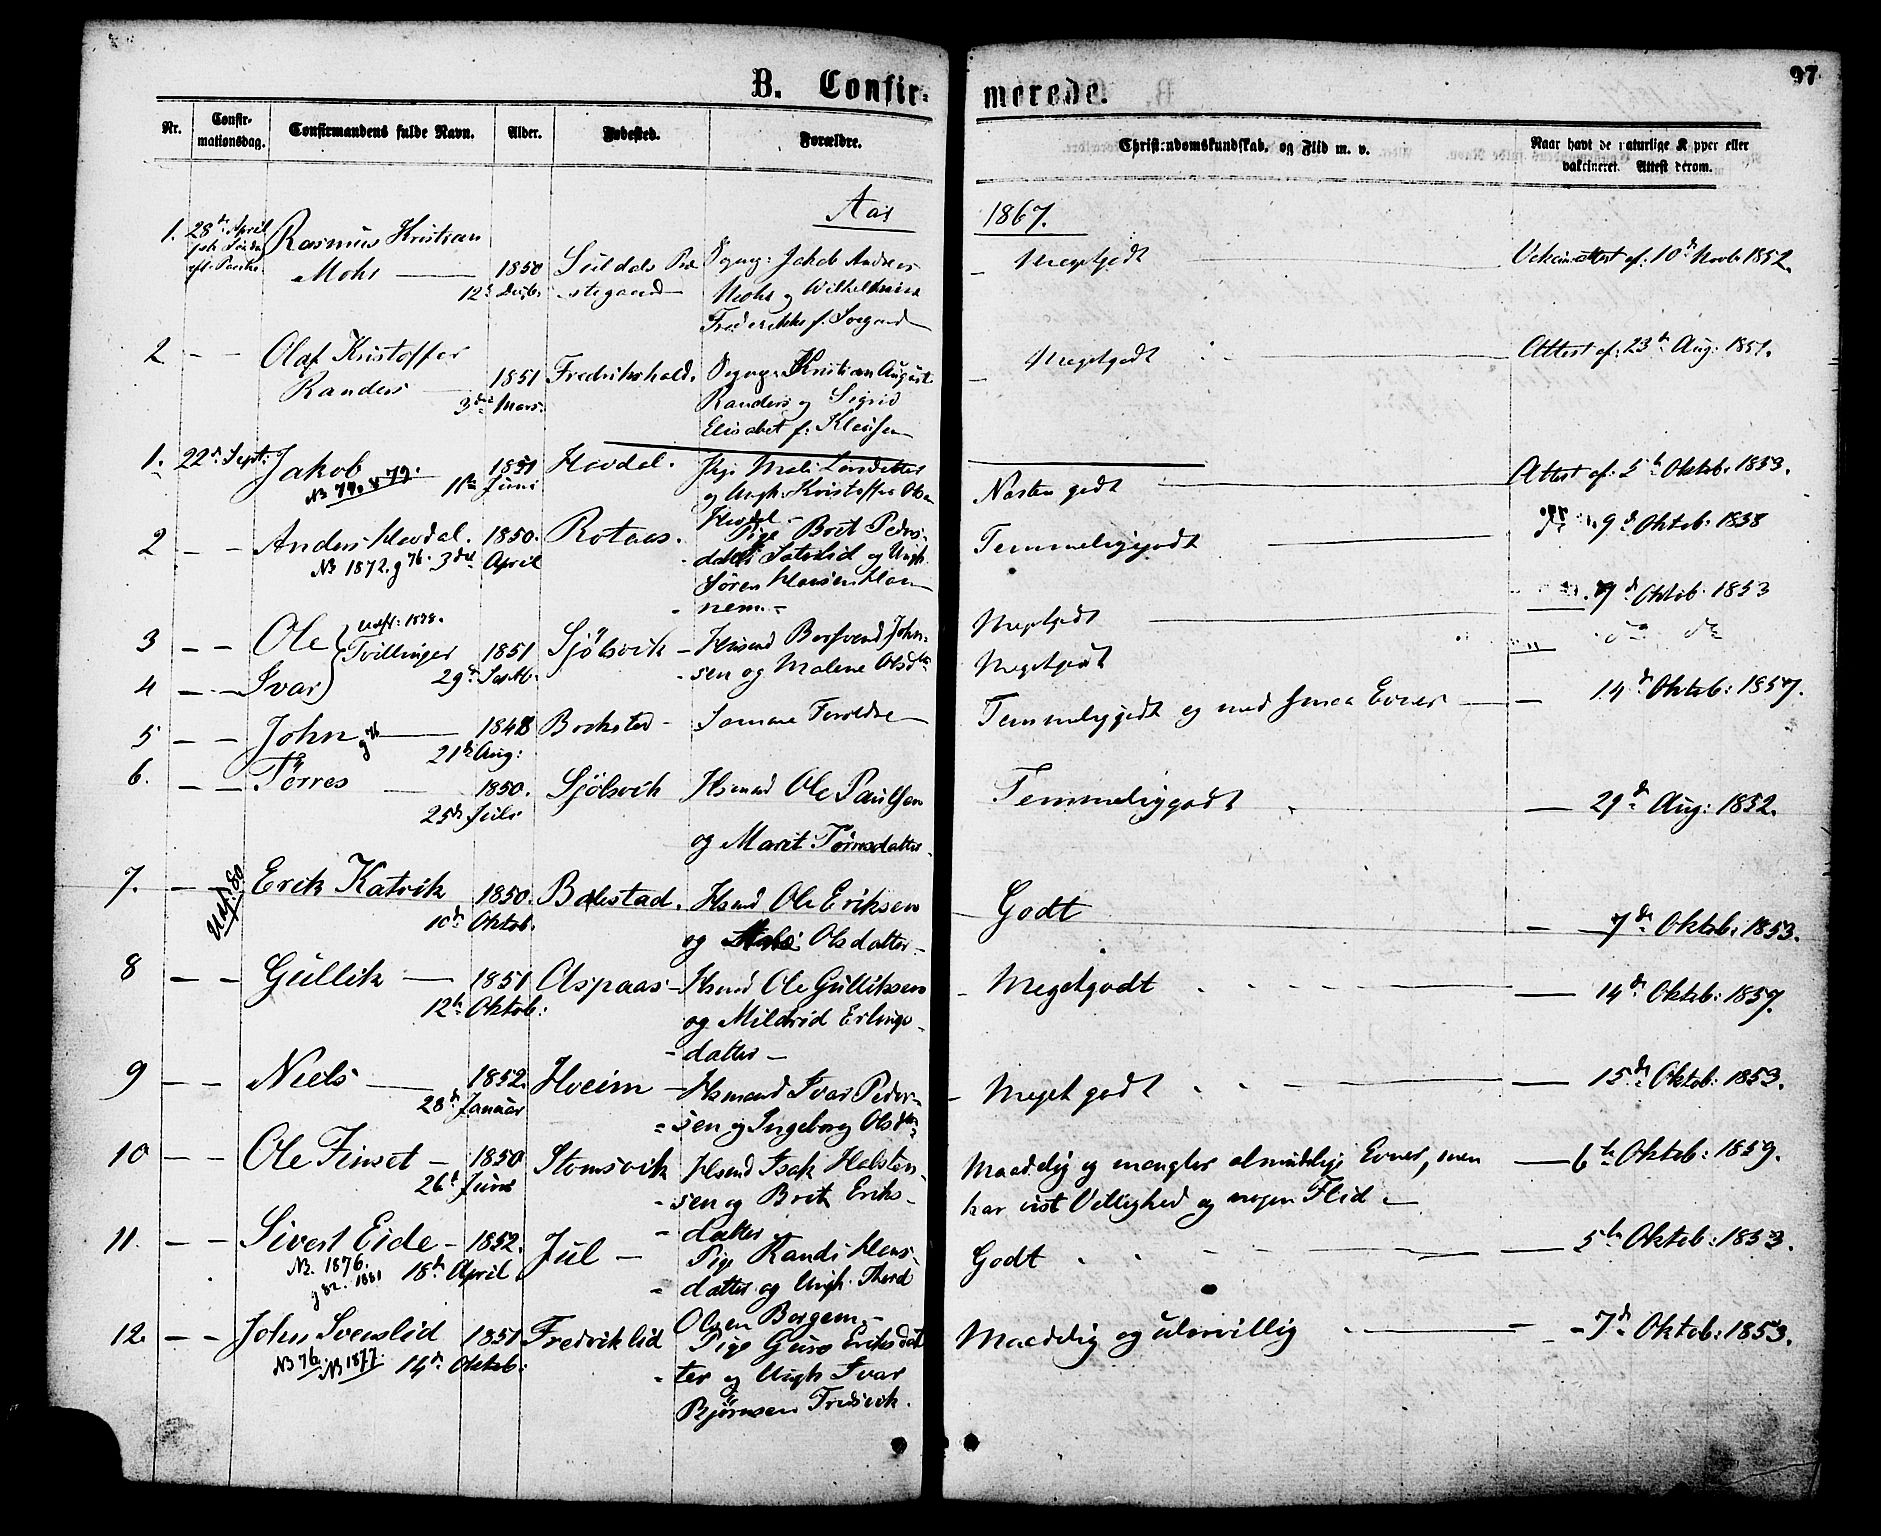 B. Confir-
merede.
97
Nr.
Confir-
mationsdag.
Confirmandens fulde Navn.
Alder.
Fødested.
Forældre.
Christendomskundskab, og Flid m. v.
Naar havt de naturlige Kopper eller
vakcineret. Attest derom.
Aar
1867.
1. 28de April Rasmus Kristian
Mohr 1850
12te Decbr
Jakob Andreas
Mohr og Wilhelmine
Frederikke f.
Megetgodt
10de Novbr 1852.
2 Olaf Kristoffer
Randers 1851
3die Mars
Fredrikshald.
Kristian August
Randers og Sigrid
Elisabet f. Klausen
Megetgodt
Attest af: 23de Aug: 1851.
1. 22de Sept: Jakob 1851
11te Juni
Hovdal.
og Ungk: Kristoffer Olsen
Hovdal
Næsten godt
Attest af: 5te Oktob. 1853.
2 Anders Hovdal. 1850.
NB 1872. g 76. 3die April
Rotaas.
Pige Beret Peders-
og Ungk.
Søren Hansen
Temmeliggodt
9de Oktob. 1858
3 Ole
Tvillinger 1851
Sjölsvik
Husmd
sen og Malene Olsdtr
Megetgodt
9de Oktob. 1853
4 Ivar
29de
Megetgodt
do do
5 John 1848
21de Aug:
Samme Forældre
Temmeliggodt og med smaa Evner
14de Oktob: 1857.
6. Törres 1850.
25de Juli
Sjölsvik
Husmd Ole Paulsen
og Marit Törresdatter
Temmeliggodt
29de Aug: 1852.
Udf. 80
7. Erik Katvik 1850.
10de Oktob.
Bolestad.
Husmd Ole Eriksen
og Olsdatter
Godt
7de Oktob: 1853.
8 Gullik 1851
12te Oktob:
Aspaas
Husmd Ole Gulliksen
og Mildrid Erlings-
datter
Megetgodt
14de Oktob: 1857.
9 Niels 1852.
28de Januar
Hoeim
Husmand Ivar Peder-
sen og Ingeborg Olsdtr
Meget godt
15de Oktob: 1853.
10 Ole Finset 1850
26de Juni
Stomsvik
Husmd Isak Halsten-
sen og Brit Eriks-
datter
Maadelig og mangler almindelige Evner, men
har vist Villighed og nogen Flid
6te Oktob: 1859.
11. Sivert Eide 1852.
NB. 1876.
g 82. 1881
18de April
Jul
Pige Randi Hans-
datter og Ungk.
Olsen Borgem
Godt
5te Oktob: 1853.
12. John Svenslid 1851
NB 76. NB 1877.
14de Oktob:
Fredriklid
Pige Guro Eriksdat
ter og Ungk Ivar
Björnsen Fredsvik.
Maadelig og uforvillig
7de Oktob: 1853.